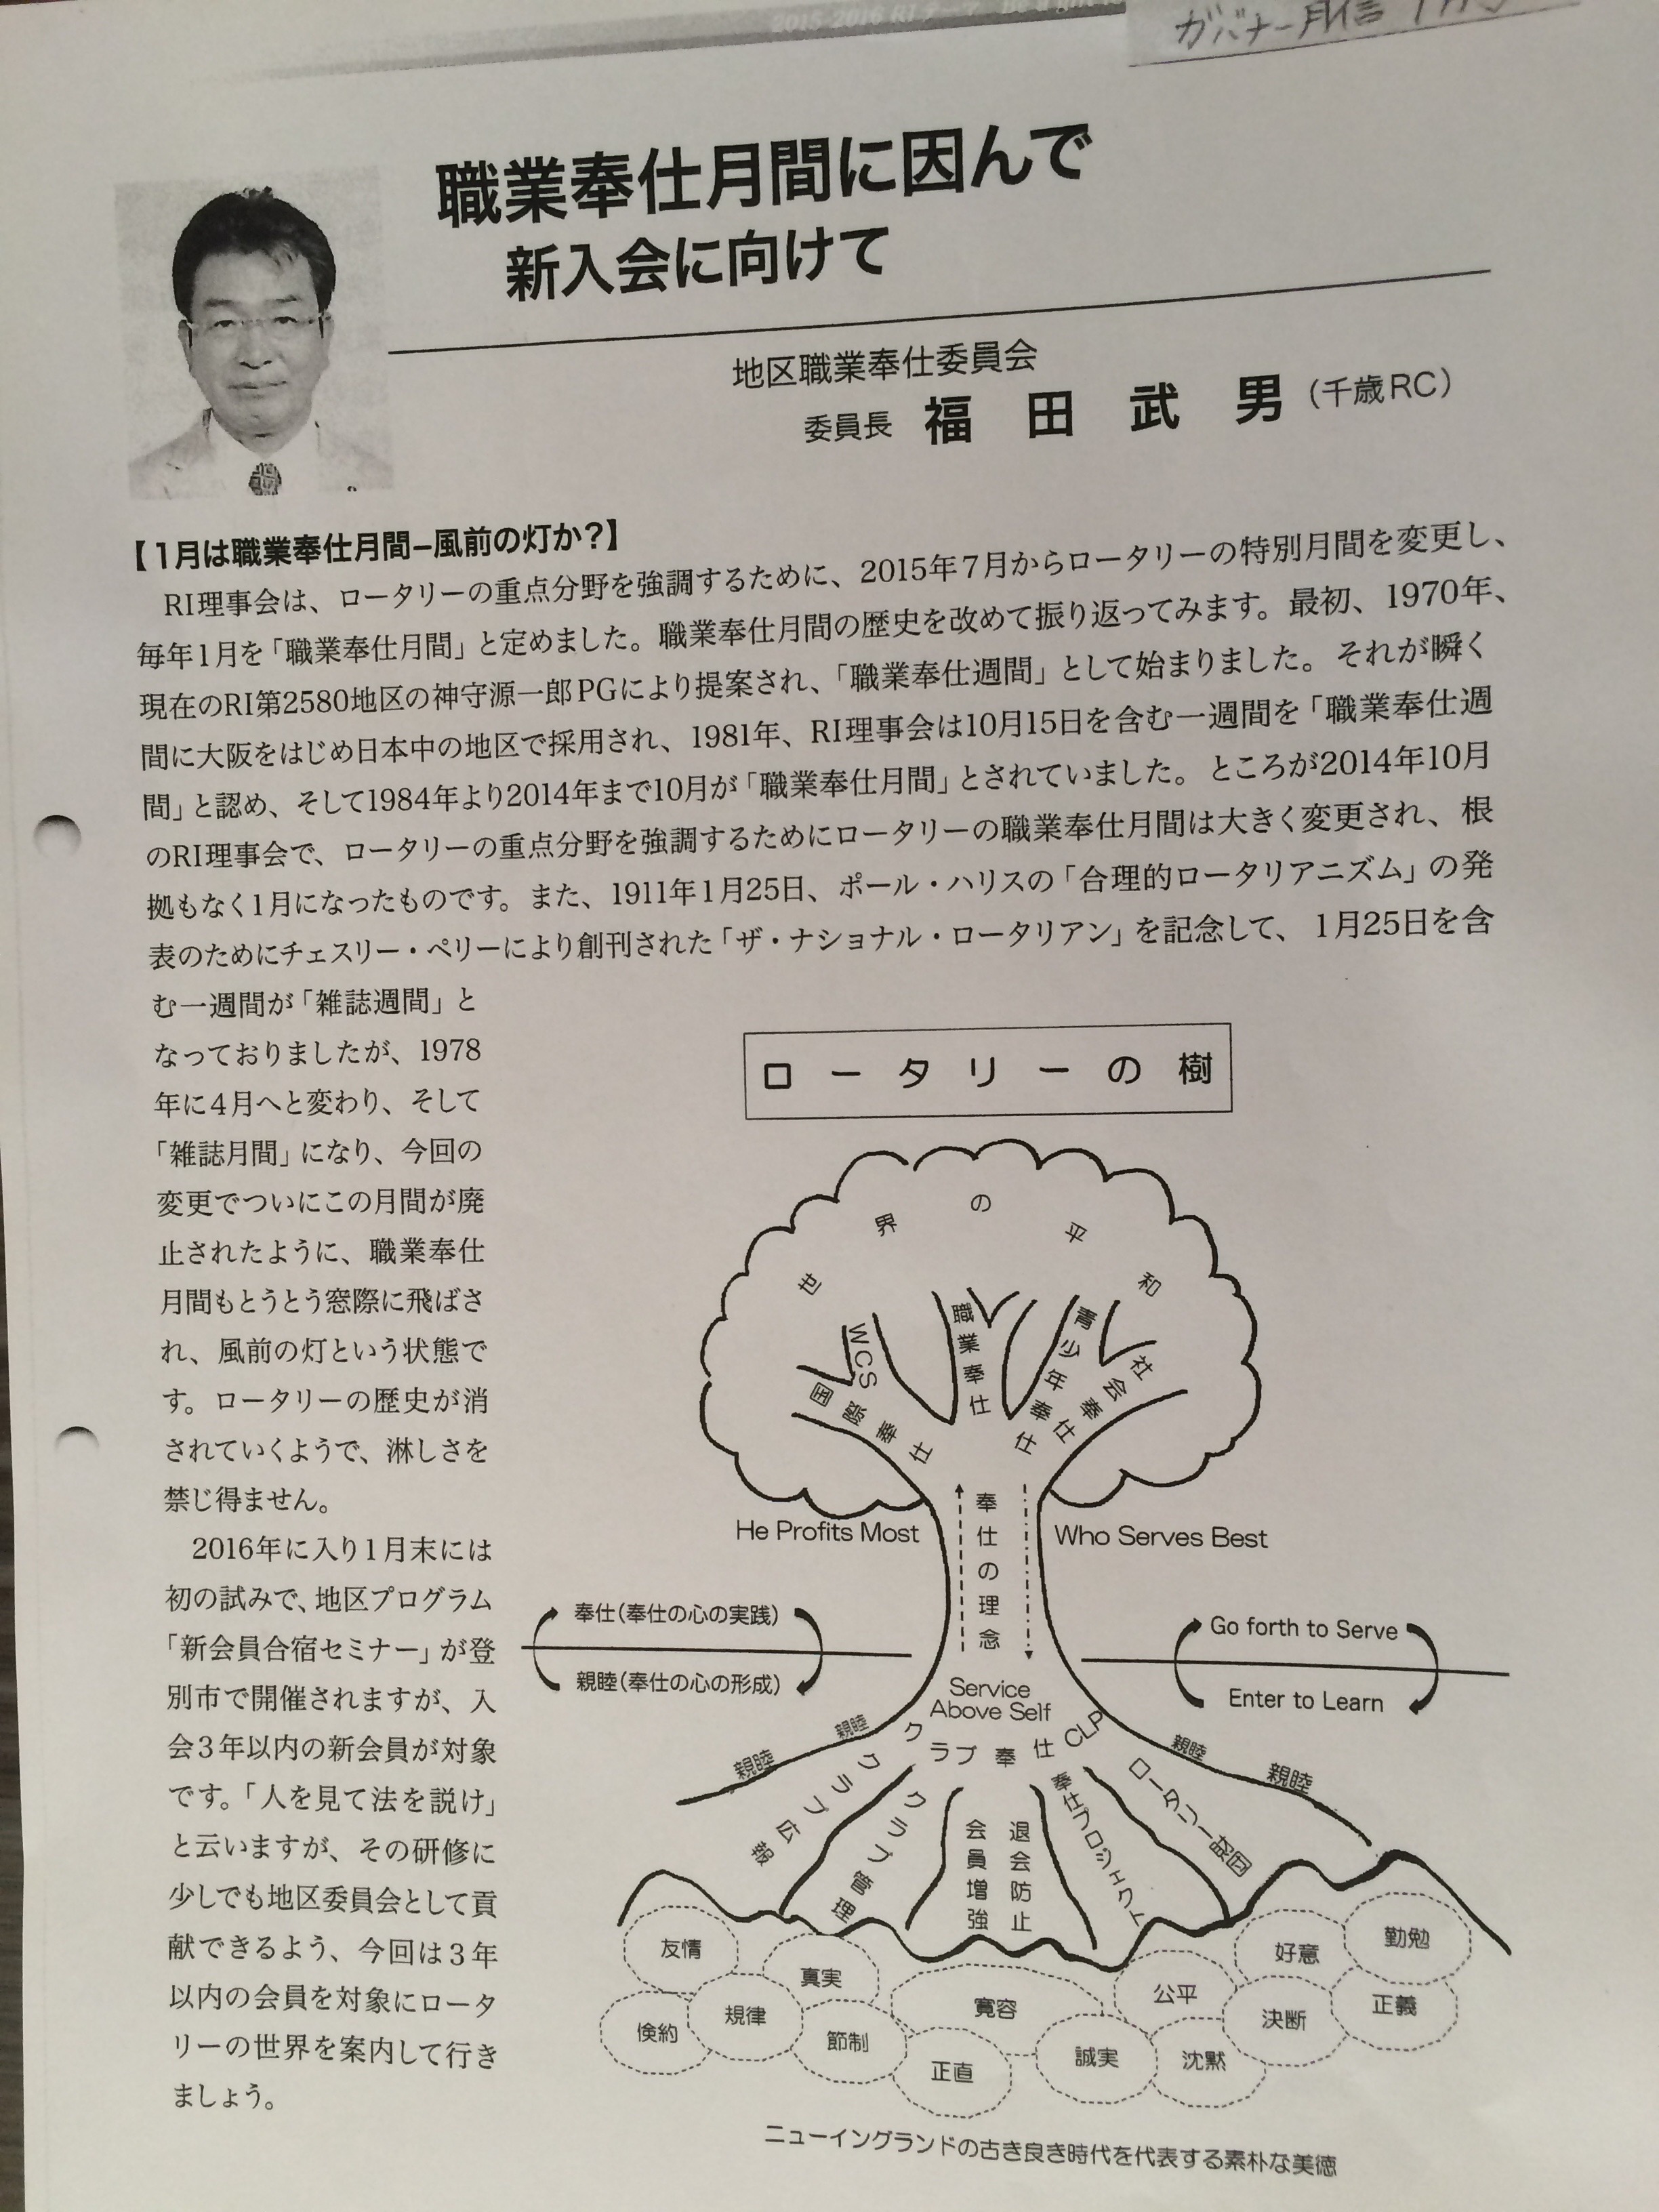 2015-2016 RIテーマ
ガバナー月信
職業奉仕月間に因んで
新入会に向けて
地区職業奉仕委員会
委員長 福田武男（千歳RC）
【1月は職業奉仕月間–風前の灯か？】
RI理事会は、ロータリーの重点分野を強調するために、2015年7月からロータリーの特別月間を変更し、
毎年1月を「職業奉仕月間」と定めました。職業奉仕月間の歴史を改めて振り返ってみます。最初、1970年、
現在のRI第2580地区の神守源一郎PGにより提案され、「職業奉仕週間」として始まりました。それが瞬く
間に大阪をはじめ日本中の地区で採用され、1981年、RI理事会は10月15日を含む一週間を「職業奉仕週
間」と認め、そして1984年より2014年まで10月が「職業奉仕月間」とされていました。ところが2014年10月
のRI理事会で、ロータリーの重点分野を強調するためにロータリーの職業奉仕月間は大きく変更され、根
拠もなく1月になったものです。また、1911年1月25日、ポール・ハリスの「合理的ロータリアニズム」の発
表のためにチェスリー・ペリーにより創刊された「ザ・ナショナル・ロータリアン」を記念して、1月25日を含
む一週間が「雑誌週間」と
なっておりましたが、1978
年に4月へと変わり、そして
「雑誌月間」になり、今回の
変更でついにこの月間が廃
止されたように、職業奉仕
月間もとうとう窓際に飛ばさ
れ、風前の灯という状態で
す。ロータリーの歴史が消
されていくようで、淋しさを
禁じ得ません。
2016年に入り1月末には
初の試みで、地区プログラム
「新会員合宿セミナー」が登
別市で開催されますが、入
会3年以内の新会員が対象
です。「人を見て法を説け」
と云いますが、その研修に
少しでも地区委員会として貢
献できるよう、今回は3年
以内の会員を対象にロータ
リーの世界を案内して行き
ましょう。
ロータリーの樹
世界の平和
WCS
国際奉仕
職業奉仕
青少年奉仕
社会奉仕
He Profits Most
奉仕の理念
Who Serves Best
奉仕（奉仕の心の実践）
親睦（奉仕の心の形成）
Go forth to Serve
Enter to Learn
Service
Above Self
親睦
親睦
クラブ奉仕
CLP
親睦
親睦
クラブ広報
クラブ管理
会員増強
退会防止
奉仕プロジェクト
ロータリー財団
友情
真実
好意
勤勉
倹約
規律
節制
寛容
公平
決断
正義
正直
誠実
沈黙
ニューイングランドの古き良き時代を代表する素朴な美徳